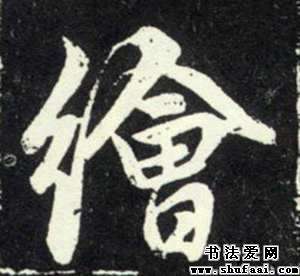 繪
书法爱网
www.shufaai.com